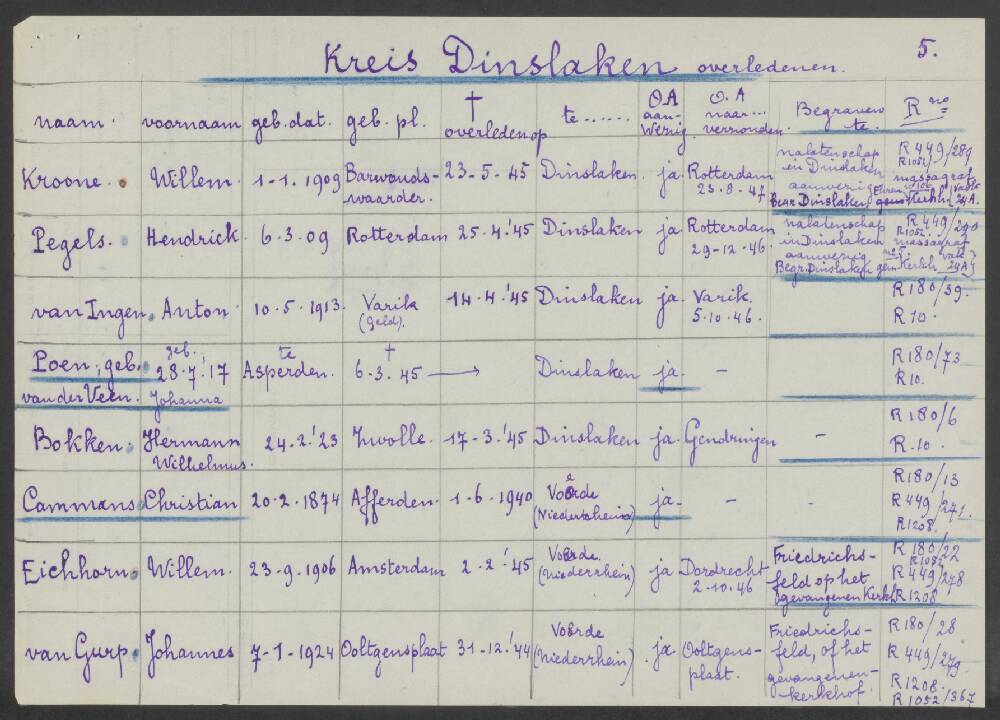 Kreis Dinslaken overledenen. 5.
naam. voornaam geb. dat. geb. pl. † overleden op te ...... O.A aanwezig. O.A naar... verzonden. Begraven te. R no
Kroone. Willem. 1-1-1909 Barwoudswaarder. 23-5-45 Dinslaken. ja. Rotterdam 23-8-47 nalatenschap in Dinslaken aanwezig Begr. Dinslaken, gem. Kerkh. R 449/289 R1052/ massagraf
Pegels. Hendrick. 6.3.09 Rotterdam 25-4.'45 Dinslaken ja. Rotterdam 29-12-46. nalatenschap in Dinslaken aanwezig Begr. Dinslaken gem. Kerkh. 24A R 449/290 R1052 massagraf
van Ingen. Anton. 10.5.1913. Varik (Geld). 14-4.'45 Dinslaken ja. Varik. 5.10.46. R180/39. R10.
Poen, geb. van der Veen. Johanna geb. 28.7.17 te Asperden. † 6.3.45 → Dinslaken ja. - R180/73 R10.
Bokken. Hermann Wilhelmus. 24.2.'23 Zwolle. 17-3.'45 Dinslaken ja. Gendringen - R180/6 R.10.
Cammans Christian 20-2.1874 Afferden. 1-6.1940 Voerde (Niederrhein) ja. - - R180/13 R449/271. R1208.
Eichhorn. Willem. 23-9.1906 Amsterdam 2-2.'45 Voerde. (Niederrhein) ja Dordrecht 2.10.46 Friedrichsfeld op het gevangenen Kerkh. R 180/22 R1052 R449/278 R1208
van Gurp. Johannes 7-1-1924 Ooltgensplaat 31-12.'44 Voerde (Niederrhein) ja. Ooltgensplaat. Friedrichsfeld, of het gevangenenkerkhof. R180/28 R 449/279 R1208. R1052/367